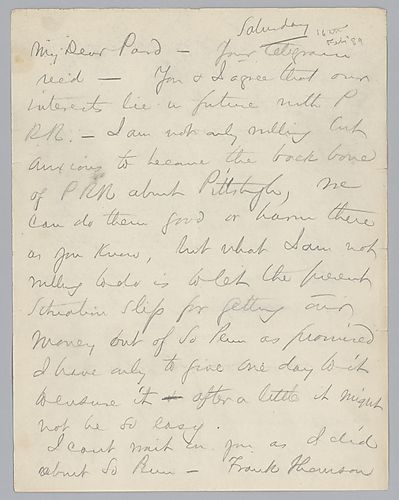 Saturday 16
Feb 89
My Dear Pard — Your telegram
rec'd — You & I agree that our
interests lie in future with P
RR. — I am not only willing but
anxious to become the back bone
of PRR about Pittsbgh, We
can do them good or harm there
as you know, but what I am not
willing to do is to let the present
situation slip for getting our
money out of So Penn as promised
I have only to give one day to it
to ensure it after a little it might
not be so easy.
I cant wait in you as I did
about So Penn — Frank Thomson